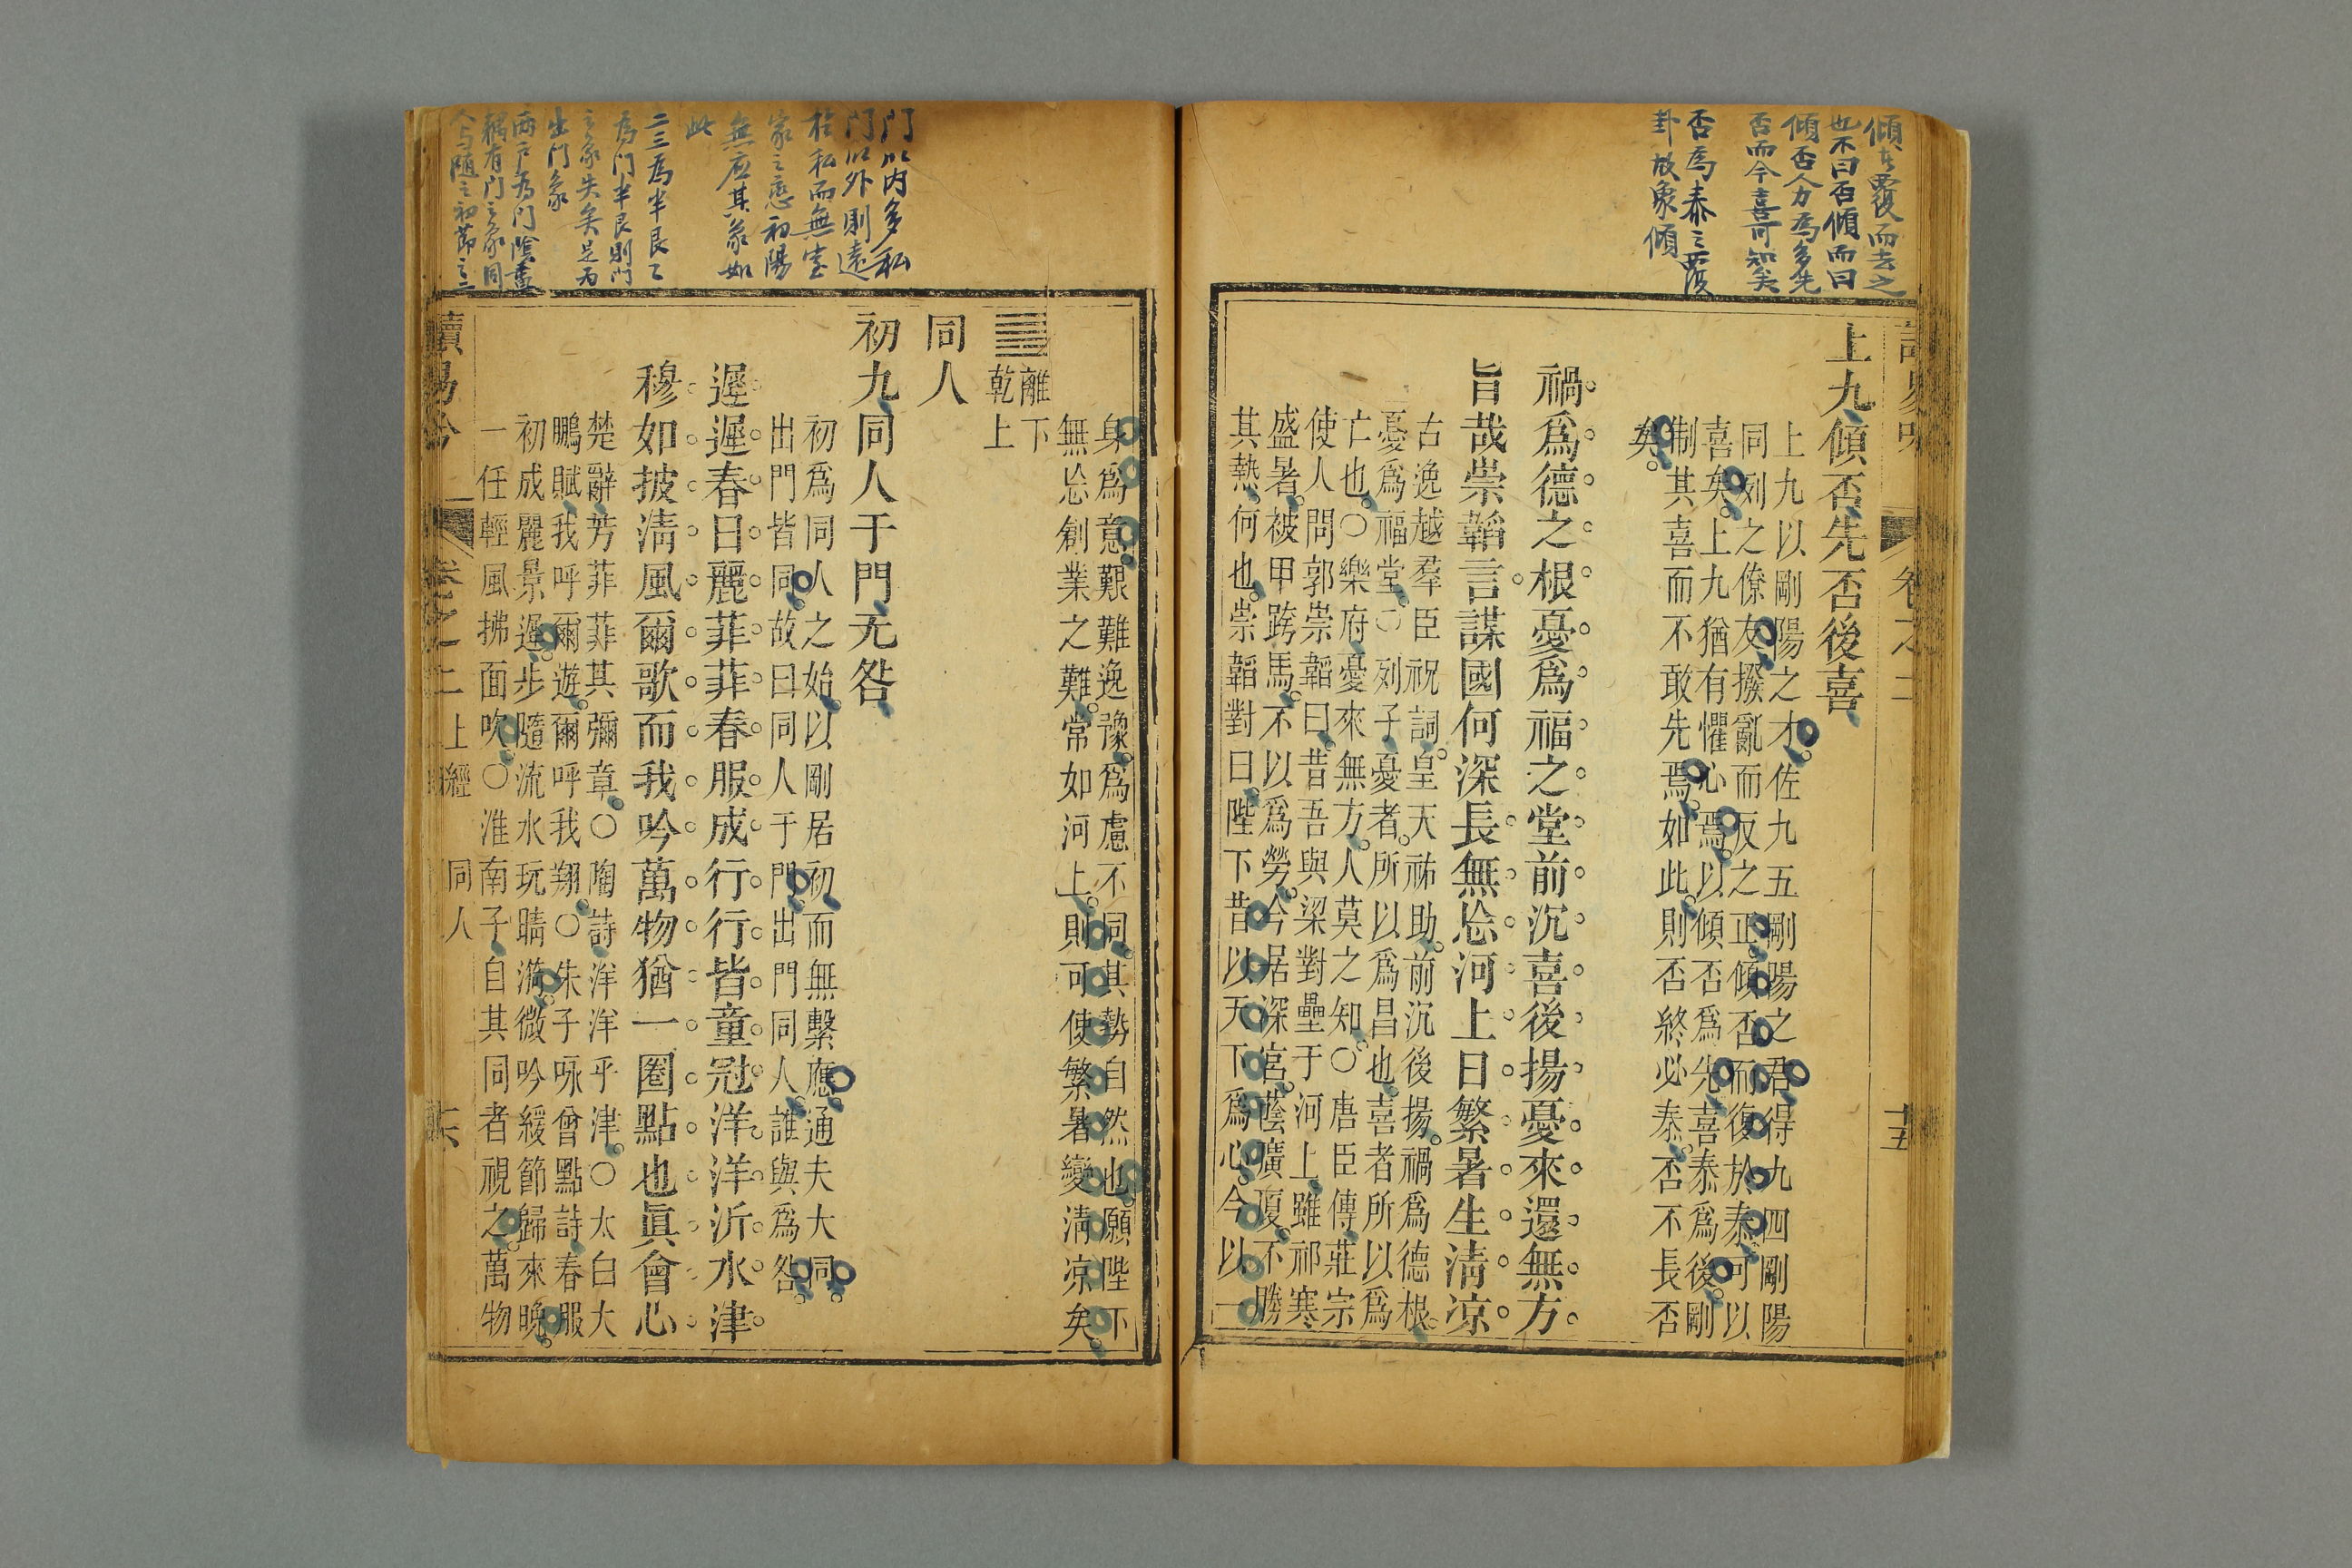 傾者覆而去之
也不曰否傾而曰
傾否人力爲多先
否而今喜可知矣
否爲泰之覆
卦故象傾
卷之二
十五
上九傾否先否後喜
上九以剛陽之才佐九五剛陽之君得九四剛陽
同列之僚友撥亂而反之正傾否而復於泰可以
喜矣上九猶有懼心焉以傾否爲先喜泰爲後剛
制其喜而不敢先焉如此則否終必泰否不長否
矣
禍爲德之根憂爲福之堂前沉喜後揚憂來還無方
旨哉崇韜言謀國何深長無忘河上日繁暑生淸凉
古逸越羣臣祝詞皇天祐助前沉後揚禍爲德根
憂爲福堂〇列子憂者所以爲昌也喜者所以爲
亡也〇樂府憂來無方人莫之知〇唐臣傳莊宗
使人問郭崇韜曰昔吾與梁對壘于河上雖祁寒
盛暑被甲跨馬不以爲勞今居深宮蔭廣廈不勝
其熱何也崇韜對曰陛下昔以天下爲心今以一
身爲意艱難逸豫爲慮不同其勢自然也願陛下
無忘創業之難常如河上則可使繁暑變淸凉矣
離下
乾上
同人
初九同人于門无咎
初爲同人之始以剛居初而無繫應通夫大同
出門皆同故曰同人于門出門同人誰與爲咎
遲遲春日麗菲菲春服成行行皆童冠洋洋沂水津
穆如披淸風爾歌而我吟萬物猶一圈點也眞會心
楚辭芳菲菲其彌章〇陶詩洋洋乎津〇太白大
鵬賦我呼爾遊爾呼我翔〇朱子咏曾點詩春服
初成麗景遲步隨流水玩晴漪微吟緩節歸來晚
一任輕風拂面吹〇淮南子自其同者視之萬物
讀易吟
卷之二
上經
同人
十六
門以内多私
門以外則遠
於私而無室
家之戀初陽
無應其象如
此
二三爲半艮乙
爲門半艮則門
之象失矣是为
出門象
兩戶为門陰畫
耦有门之象同
人与隨之初節之二